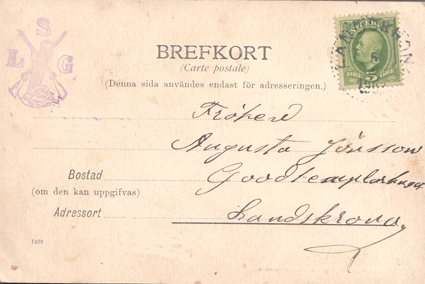 S
L G
BREFKORT
(Carte postale)
(Denna sida användes endast för adresseringen.)
SVERIGE
5
ÖRE ÖRE
LANDSKRONA
Fröken
Augusta Jönsson
Bostad
(om den kan uppgifvas)
Adressort
Landskrona,